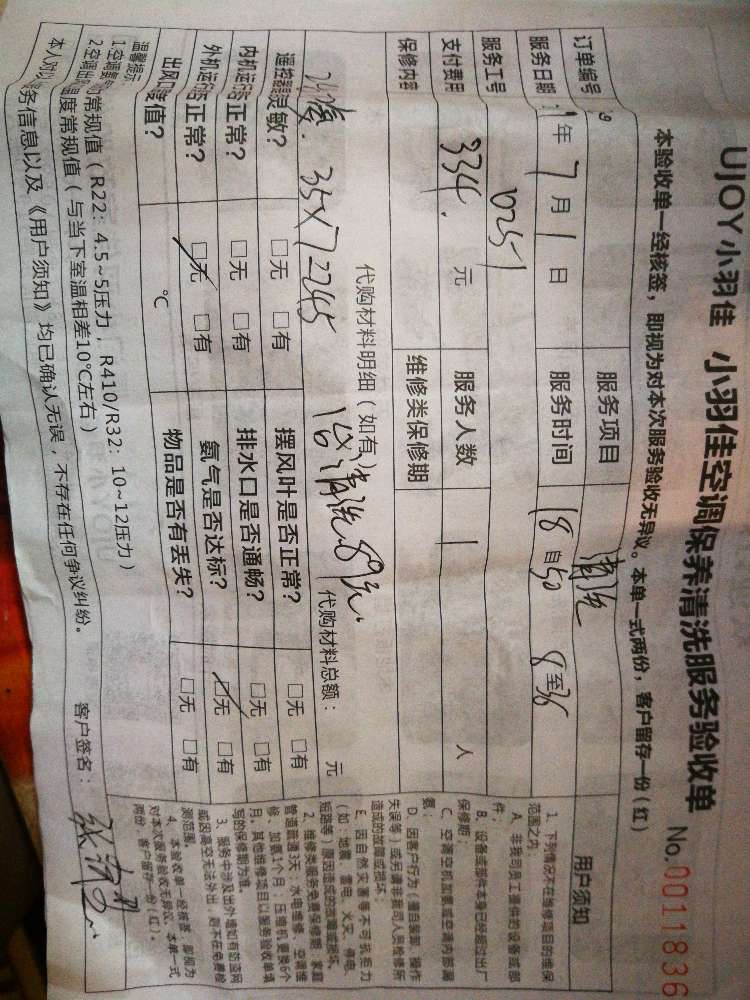 UJOY小羽佳 小羽佳空调保养清洗服务验收单
No.0011836
本验收单一经核签，即视为对本次服务验收无异议。本单一式两份，客户留存一份（红）
订单编号 服务项目 清洗
服务日期 年 7 月 1 日 服务时间 18 自 50 至
服务工号 0251
支付费用 334. 元 服务人数 1 人
保修内容 维修类保修期
代购材料明细（如有） 代购材料总额： 元
35×7=245 1台清洗89元
遥控器灵敏？ □无 □有 摆风叶是否正常？ □无 □有
内机运 正常？ □无 □有 排水口是否通畅？ □无 □有
外机运 正常？ □无 □有 氨气是否达标？ □无 □有
出风口 度值？ ℃ 物品是否有丢失？ □无 □有
温馨提示：
常规值（R22：4.5~5压力，R410/R32：10~12压力）
度常规值（与当下室温相差10℃左右）
务信息以及《用户须知》均已确认无误，不存在任何争议纠纷。
客户签名：
用户须知
1、下列情况不在维修项目的维保
范围之内：
A、非我司员工提供的设备或部
件；
B、设备或部件本身已经超过出厂
保修期；
C、空调空机加氨或空调内部漏
氨；
D、因客户行为（擅自装卸、操作
失误等）或另请非我司人员检修所
造成的故障或损坏；
E、因自然灾害等不可抗拒力
（如：地震、雷电、火灾、停电、
短路等）原因造成的故障或损坏。
2、维修类服务免费保修期：家庭
管道疏通3天；水电维修、空调维
修、加氨1个月；压缩机更换6个
月，其他维修项目以服务验收单填
写的保修期为准。
3、服务中涉及出外墙如有防盗网
或因高空无法外出，则不在免费检
测范围。
4、本验收单一经核签，即视为
对本次服务验收无异议。本单一式
两份，客户留存一份（红）。